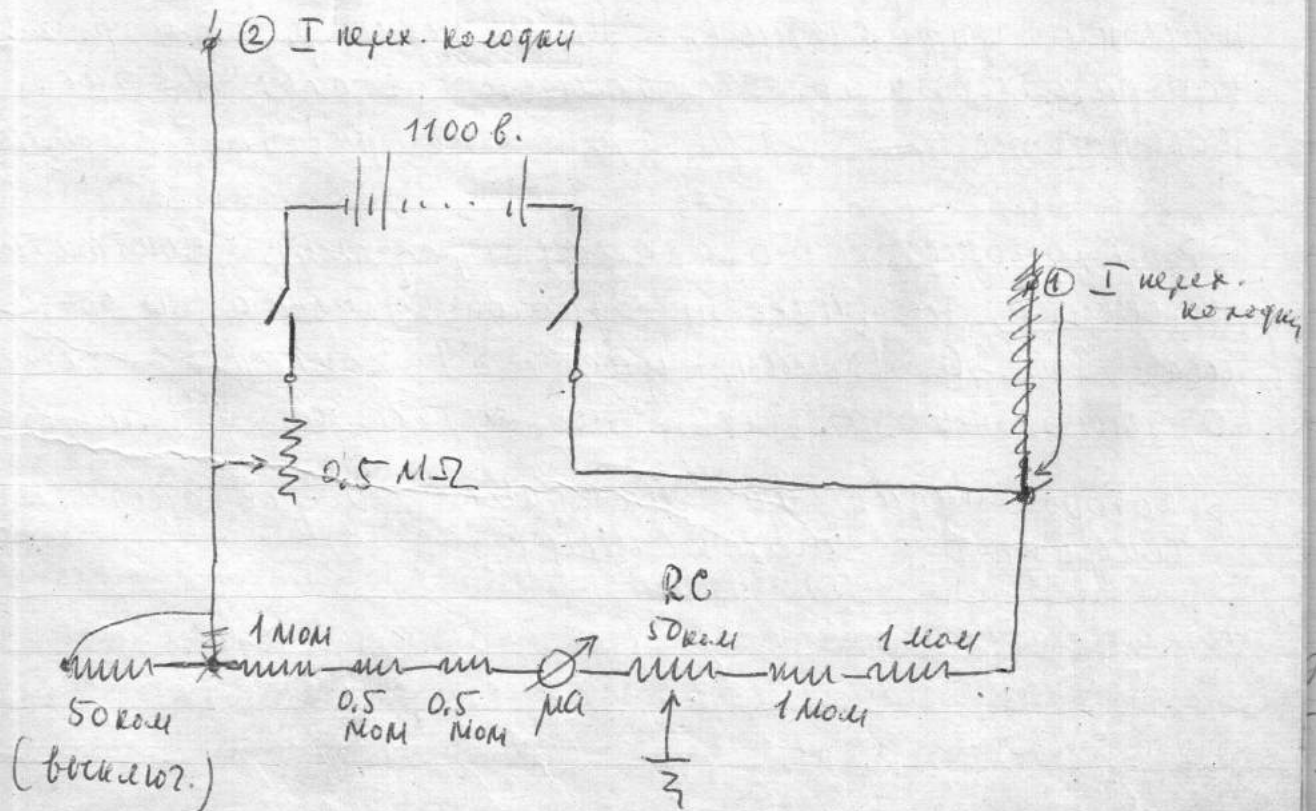 ② I перех. колодки
1100 в.
① I перех.
колодки
0,5 MΩ
RC
1 мом
50 ком
1 мом
50 ком
0.5
мом
0.5
мом
μа
1 мом
(выключ.)